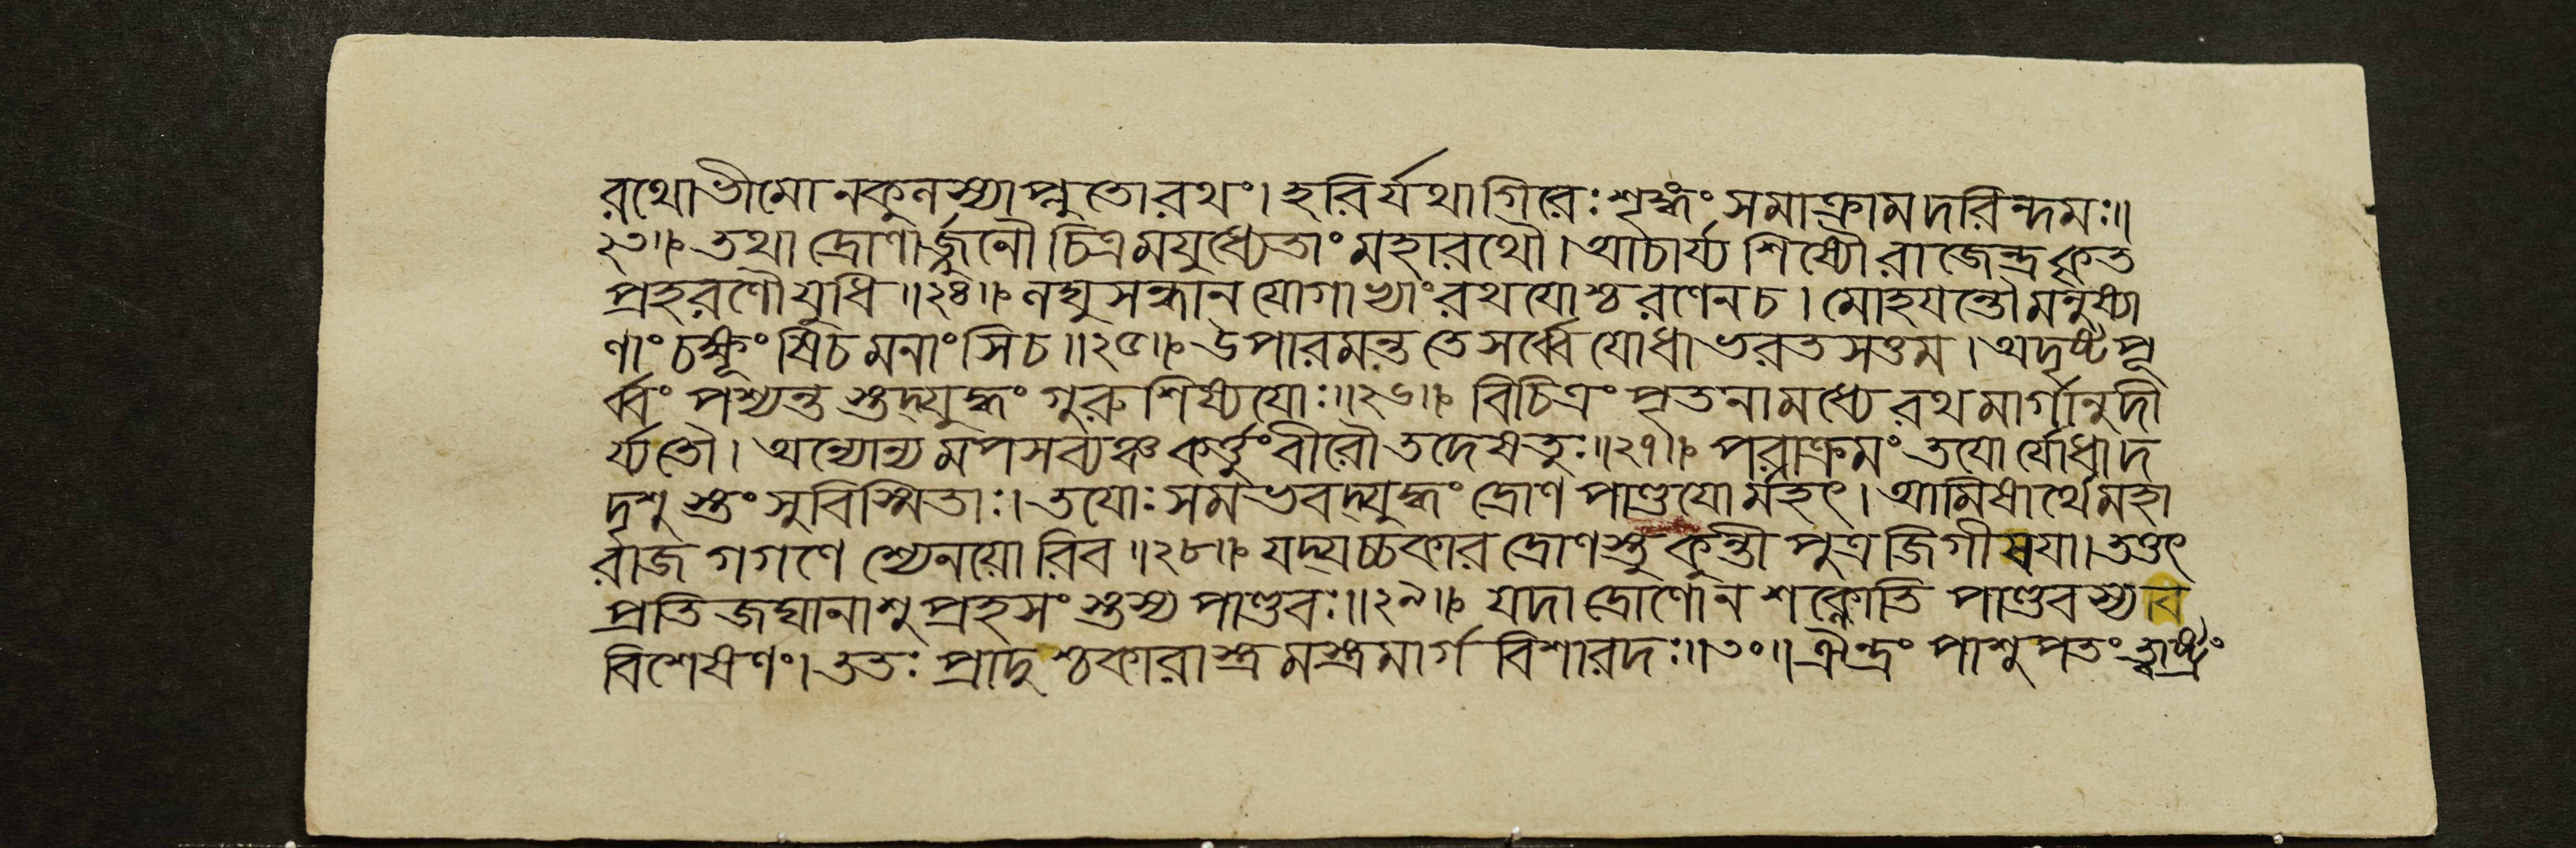 রথোভীমোনকুলস্যাপ্লুতোরথং। হরির্যথাগিরেঃশৃঙ্গংসমাক্রামদরিন্দমঃ॥
২৩॥ তথাদ্রোণার্জ্জুনৌচিত্রমযুধ্যেতাংমহারথৌ।আচার্য্যশিষ্যৌরাজেন্দ্রকৃত
প্রহরণৌযুধি॥২৪॥ লঘুসন্ধানযোগাভ্যাংরথযোশ্চরণেনচ। মোহযন্তৌমনুষ্যা
ণাংচক্ষূংষিচমনাংসিচ॥২৫॥ উপারমন্ততেসর্ব্বেযোধাভরতসত্তম।অদৃষ্টপূ
র্ব্বংপশ্যন্তস্তদ্যুদ্ধংগুরুশিষ্যযোঃ॥২৬॥ বিচিত্রংপৃতনামধ্যেরথমার্গানুদী
র্য্যতৌ।অন্যোন্যমপসব্যঞ্চকর্ত্তুংবীরৌতদেষতুঃ॥২৭॥ পরাক্রমংতযোর্যোধাদ
দৃশুস্তংসুবিস্মিতাঃ।তযোঃসমভবদ্যুদ্ধংদ্রোণপাণ্ডুযোর্মহৎ।আমিষার্থেমহা
রাজগগণেশ্যেনয়োরিব॥২৮॥ যদ্যচ্চকারদ্রোণস্তুকুন্তীপুত্রজিগীষযা।তত্তৎ
প্রতিজঘানাশুপ্রহসংস্তস্যপাণ্ডবঃ॥২৯॥ যদাদ্রোণোনশক্নোতিপাণ্ডবস্যবি
বিশেষণং।ততঃপ্রাদুশ্চকারাস্ত্রমস্ত্রমার্গবিশারদঃ॥৩০॥ঐন্দ্রংপাশুপতংত্বাষ্ট্রং